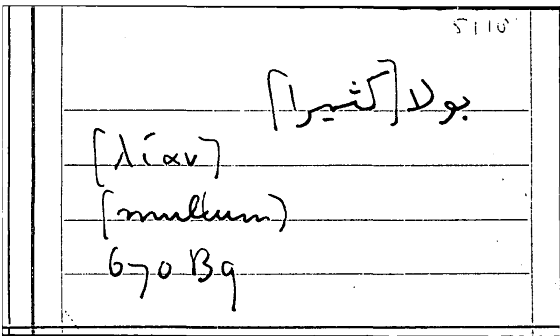 5110
بولا [كثيرا]
[λίαν]
[multum]
670 B9